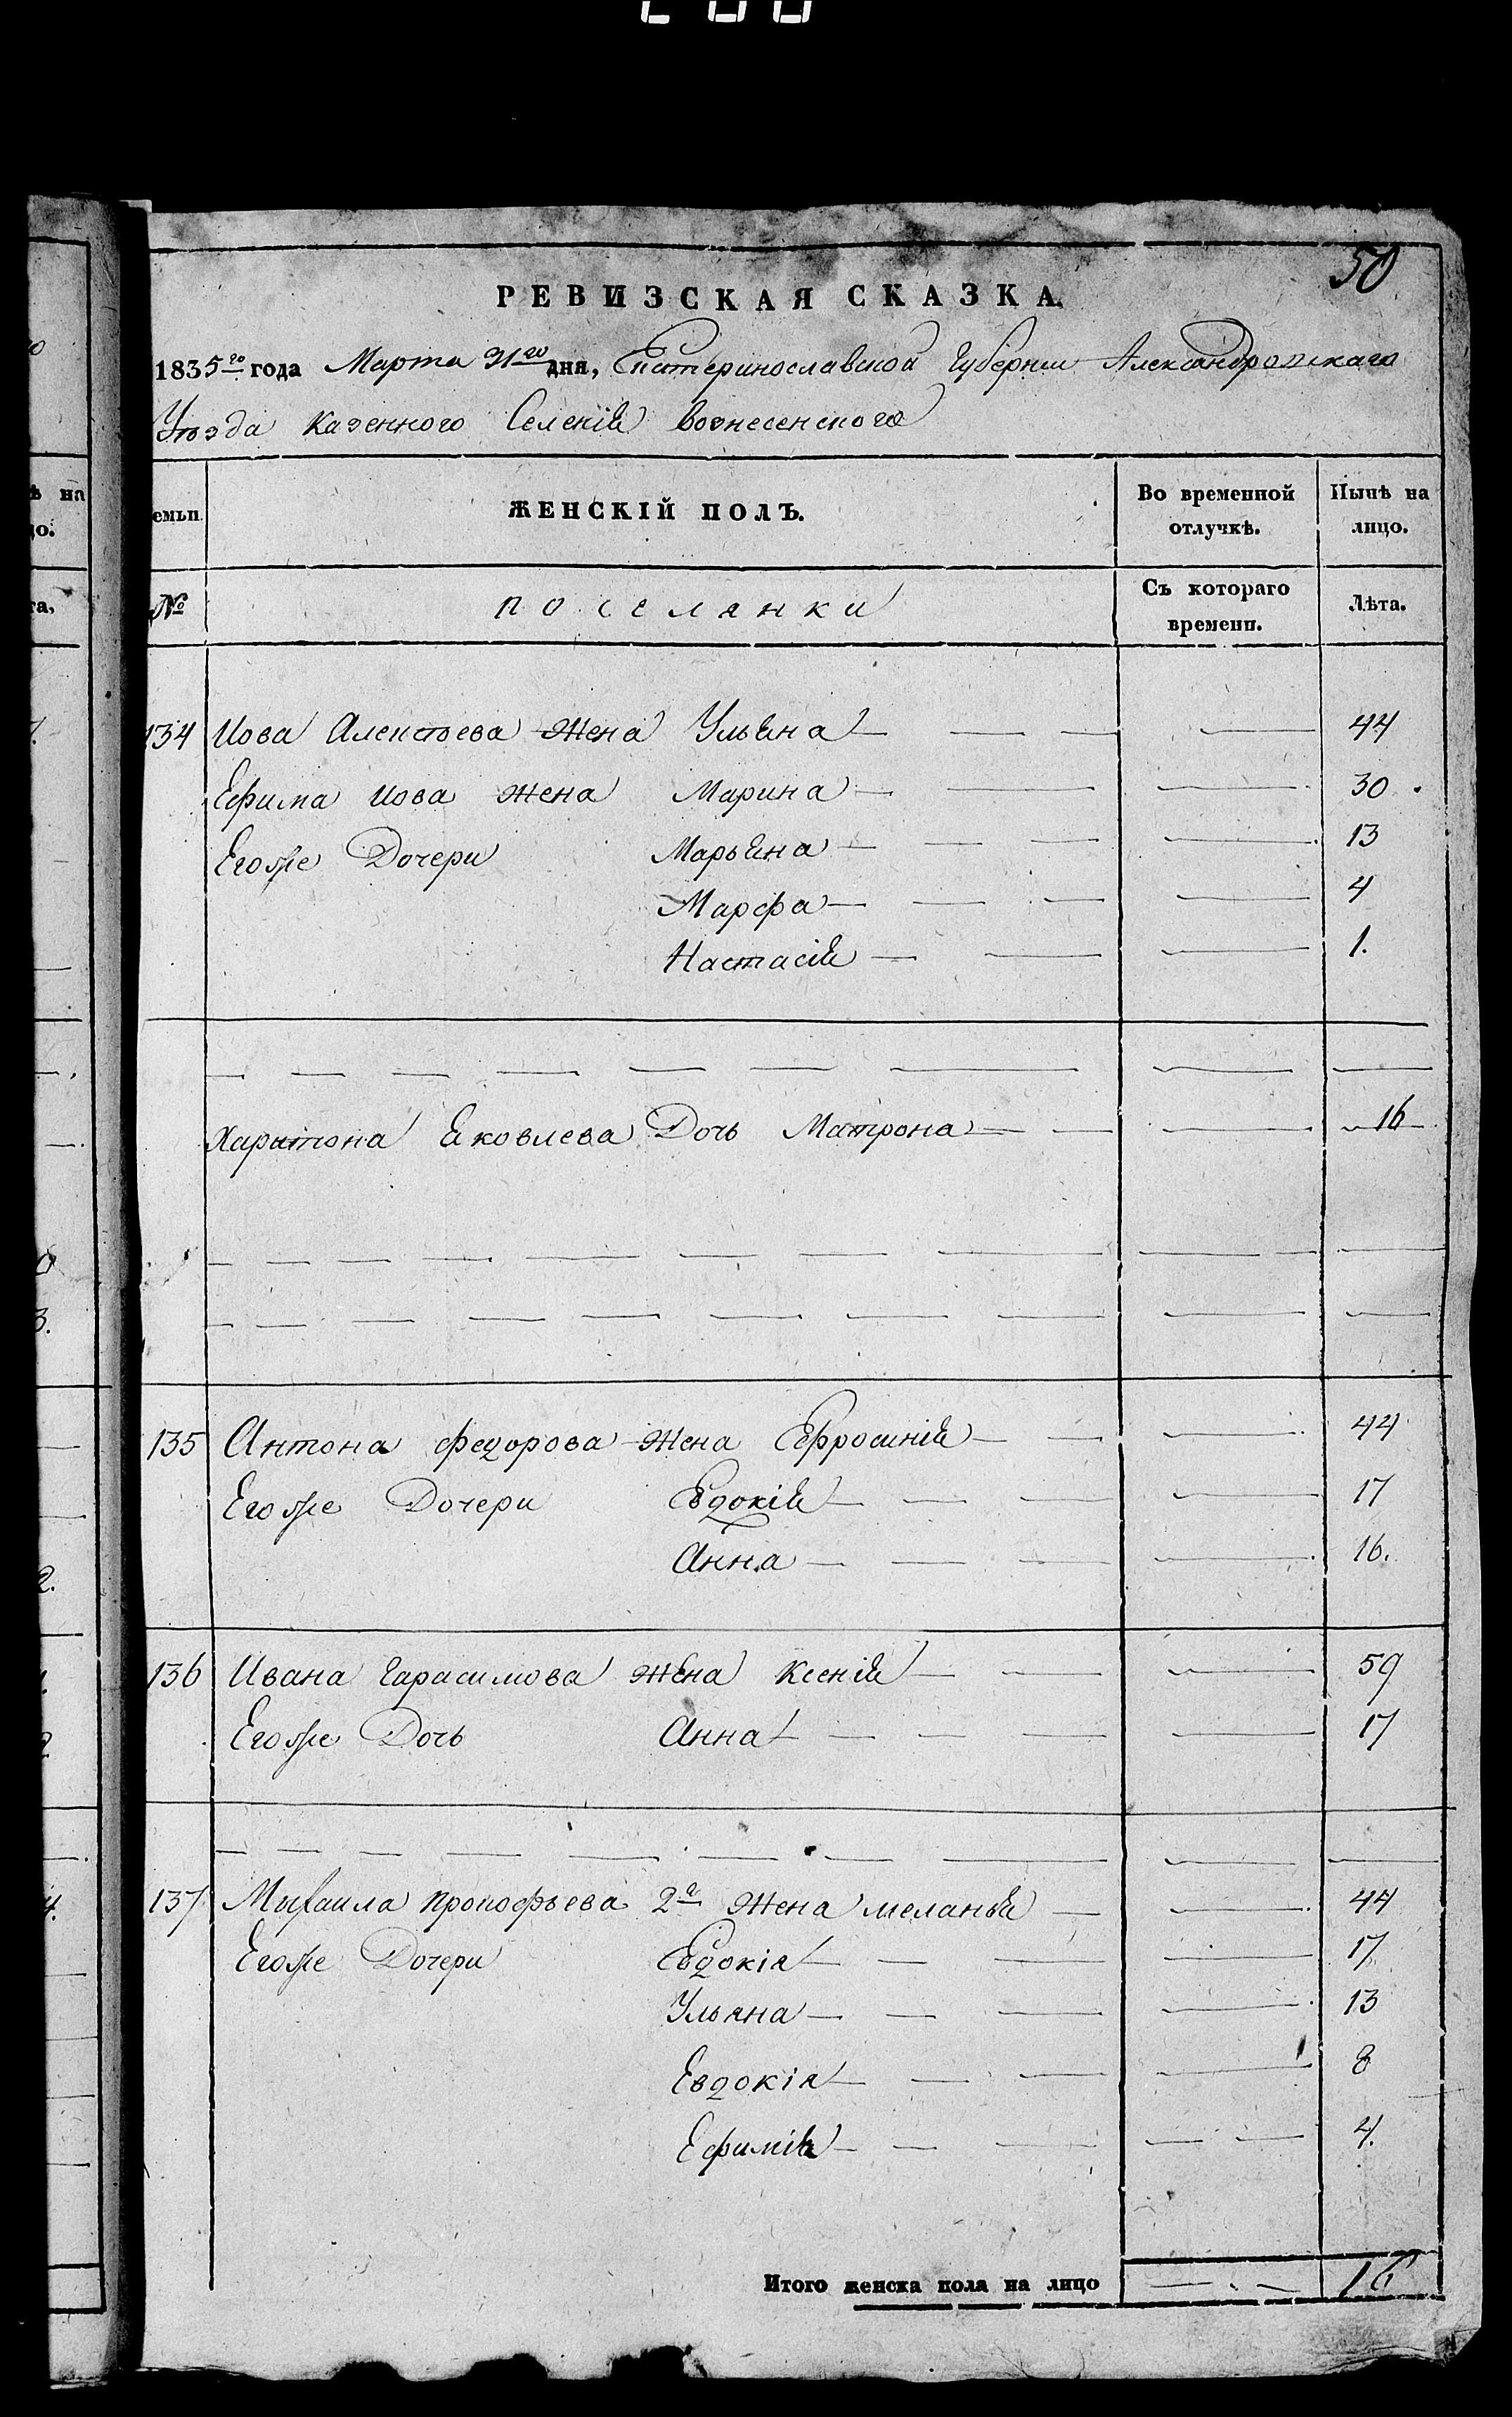 50
РЕВИЗСКАЯ СКАЗКА.
1835го года Марта 31го дня, Екатеринославской Губернии Александровскаго
Уѣзда казенного Селенія вознесенского
емьи
ЖЕНСКІЙ ПОЛЪ.
Во временной отлучкѣ.
Нынѣ на лицо.
№
поселянки
Съ котораго времени.
Лѣта.
134 Иова Алексѣева Жена Ульяна 44
Ефима Иова жена Марина 30
Егоже Дочери Марьяна 13
Марфа 4
Настасія 1.
Харитона Яковлева Дочь Матрона 16
135 Антона федорова Жена Ефросинія 44
Егоже Дочери Евдокія 17
Анна 16.
136 Ивана Гарасимова жена Ксенія 59
Егоже Дочь Анна 17
137 Михаила прокофьева 2я Жена меланья 44
Егоже Дочери Евдокія 17
Ульяна 13
Евдокія 8
Ефимія 4.
Итого женска пола на лицо 16